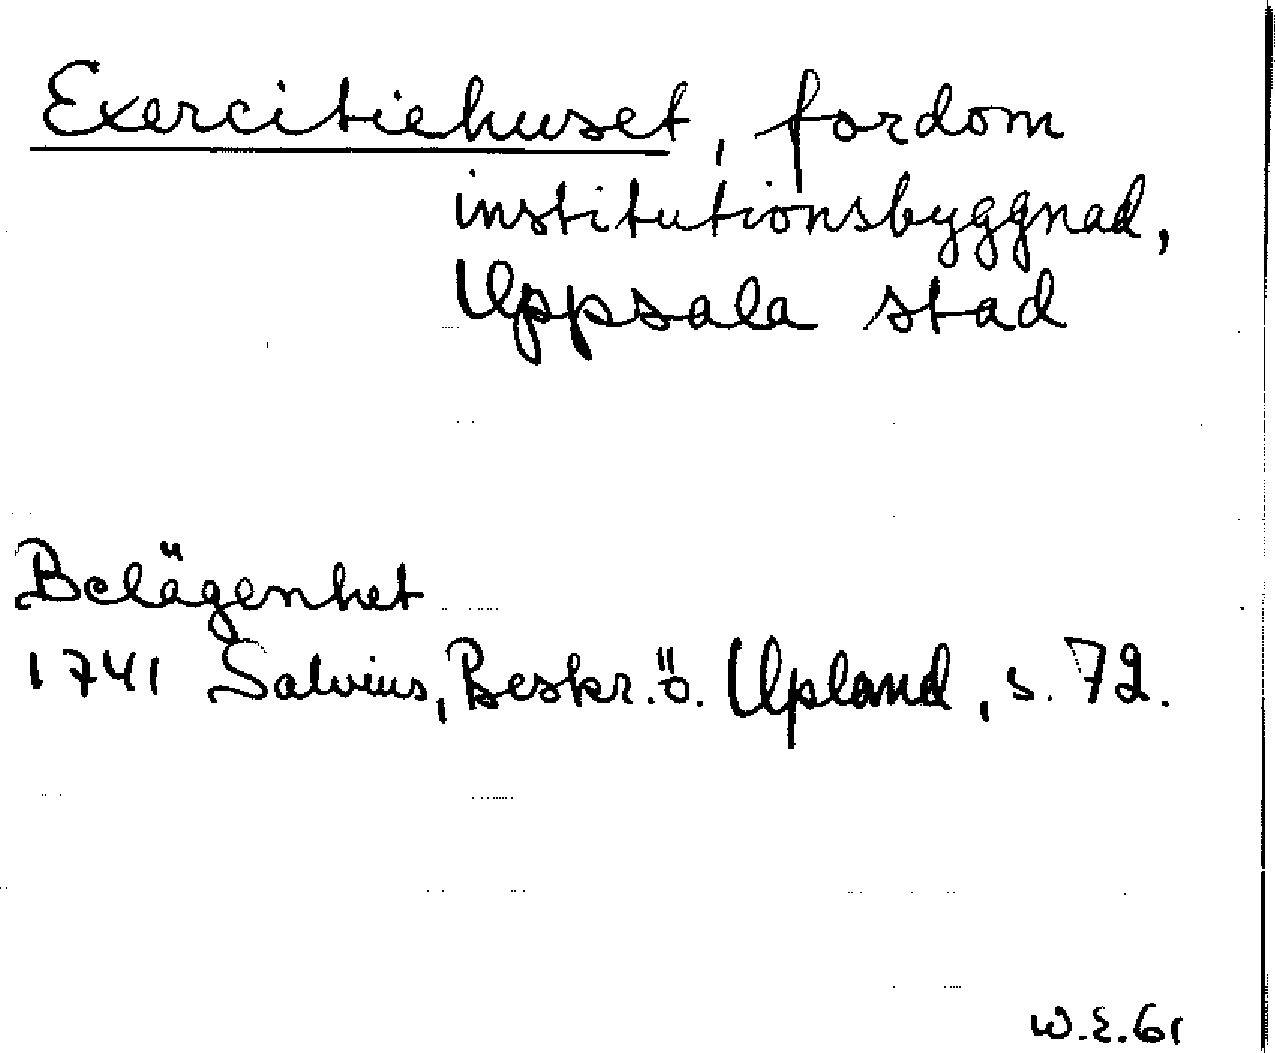 Exercitiehuset, fordom
institutionsbyggnad,
Uppsala stad
Belägenhet
1741 Salvius, Beskr. ö. Upland, s. 72.
W.E. 61